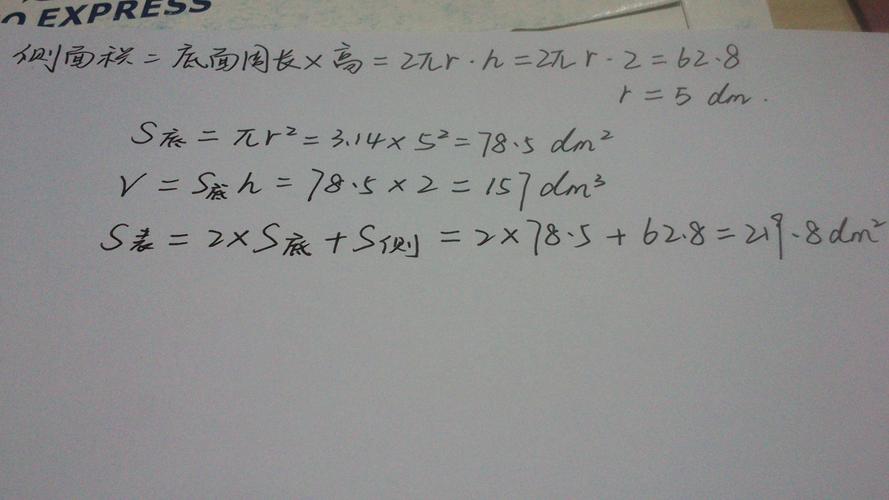 O EXPRESS
侧面积=底面周长×高=2πr·h=2πr·2=62.8
r=5 dm.
S底=πr²=3.14×5²=78.5 dm²
V=S底h=78.5×2=157dm³
S表=2×S底+S侧=2×78.5+62.8=219.8dm²